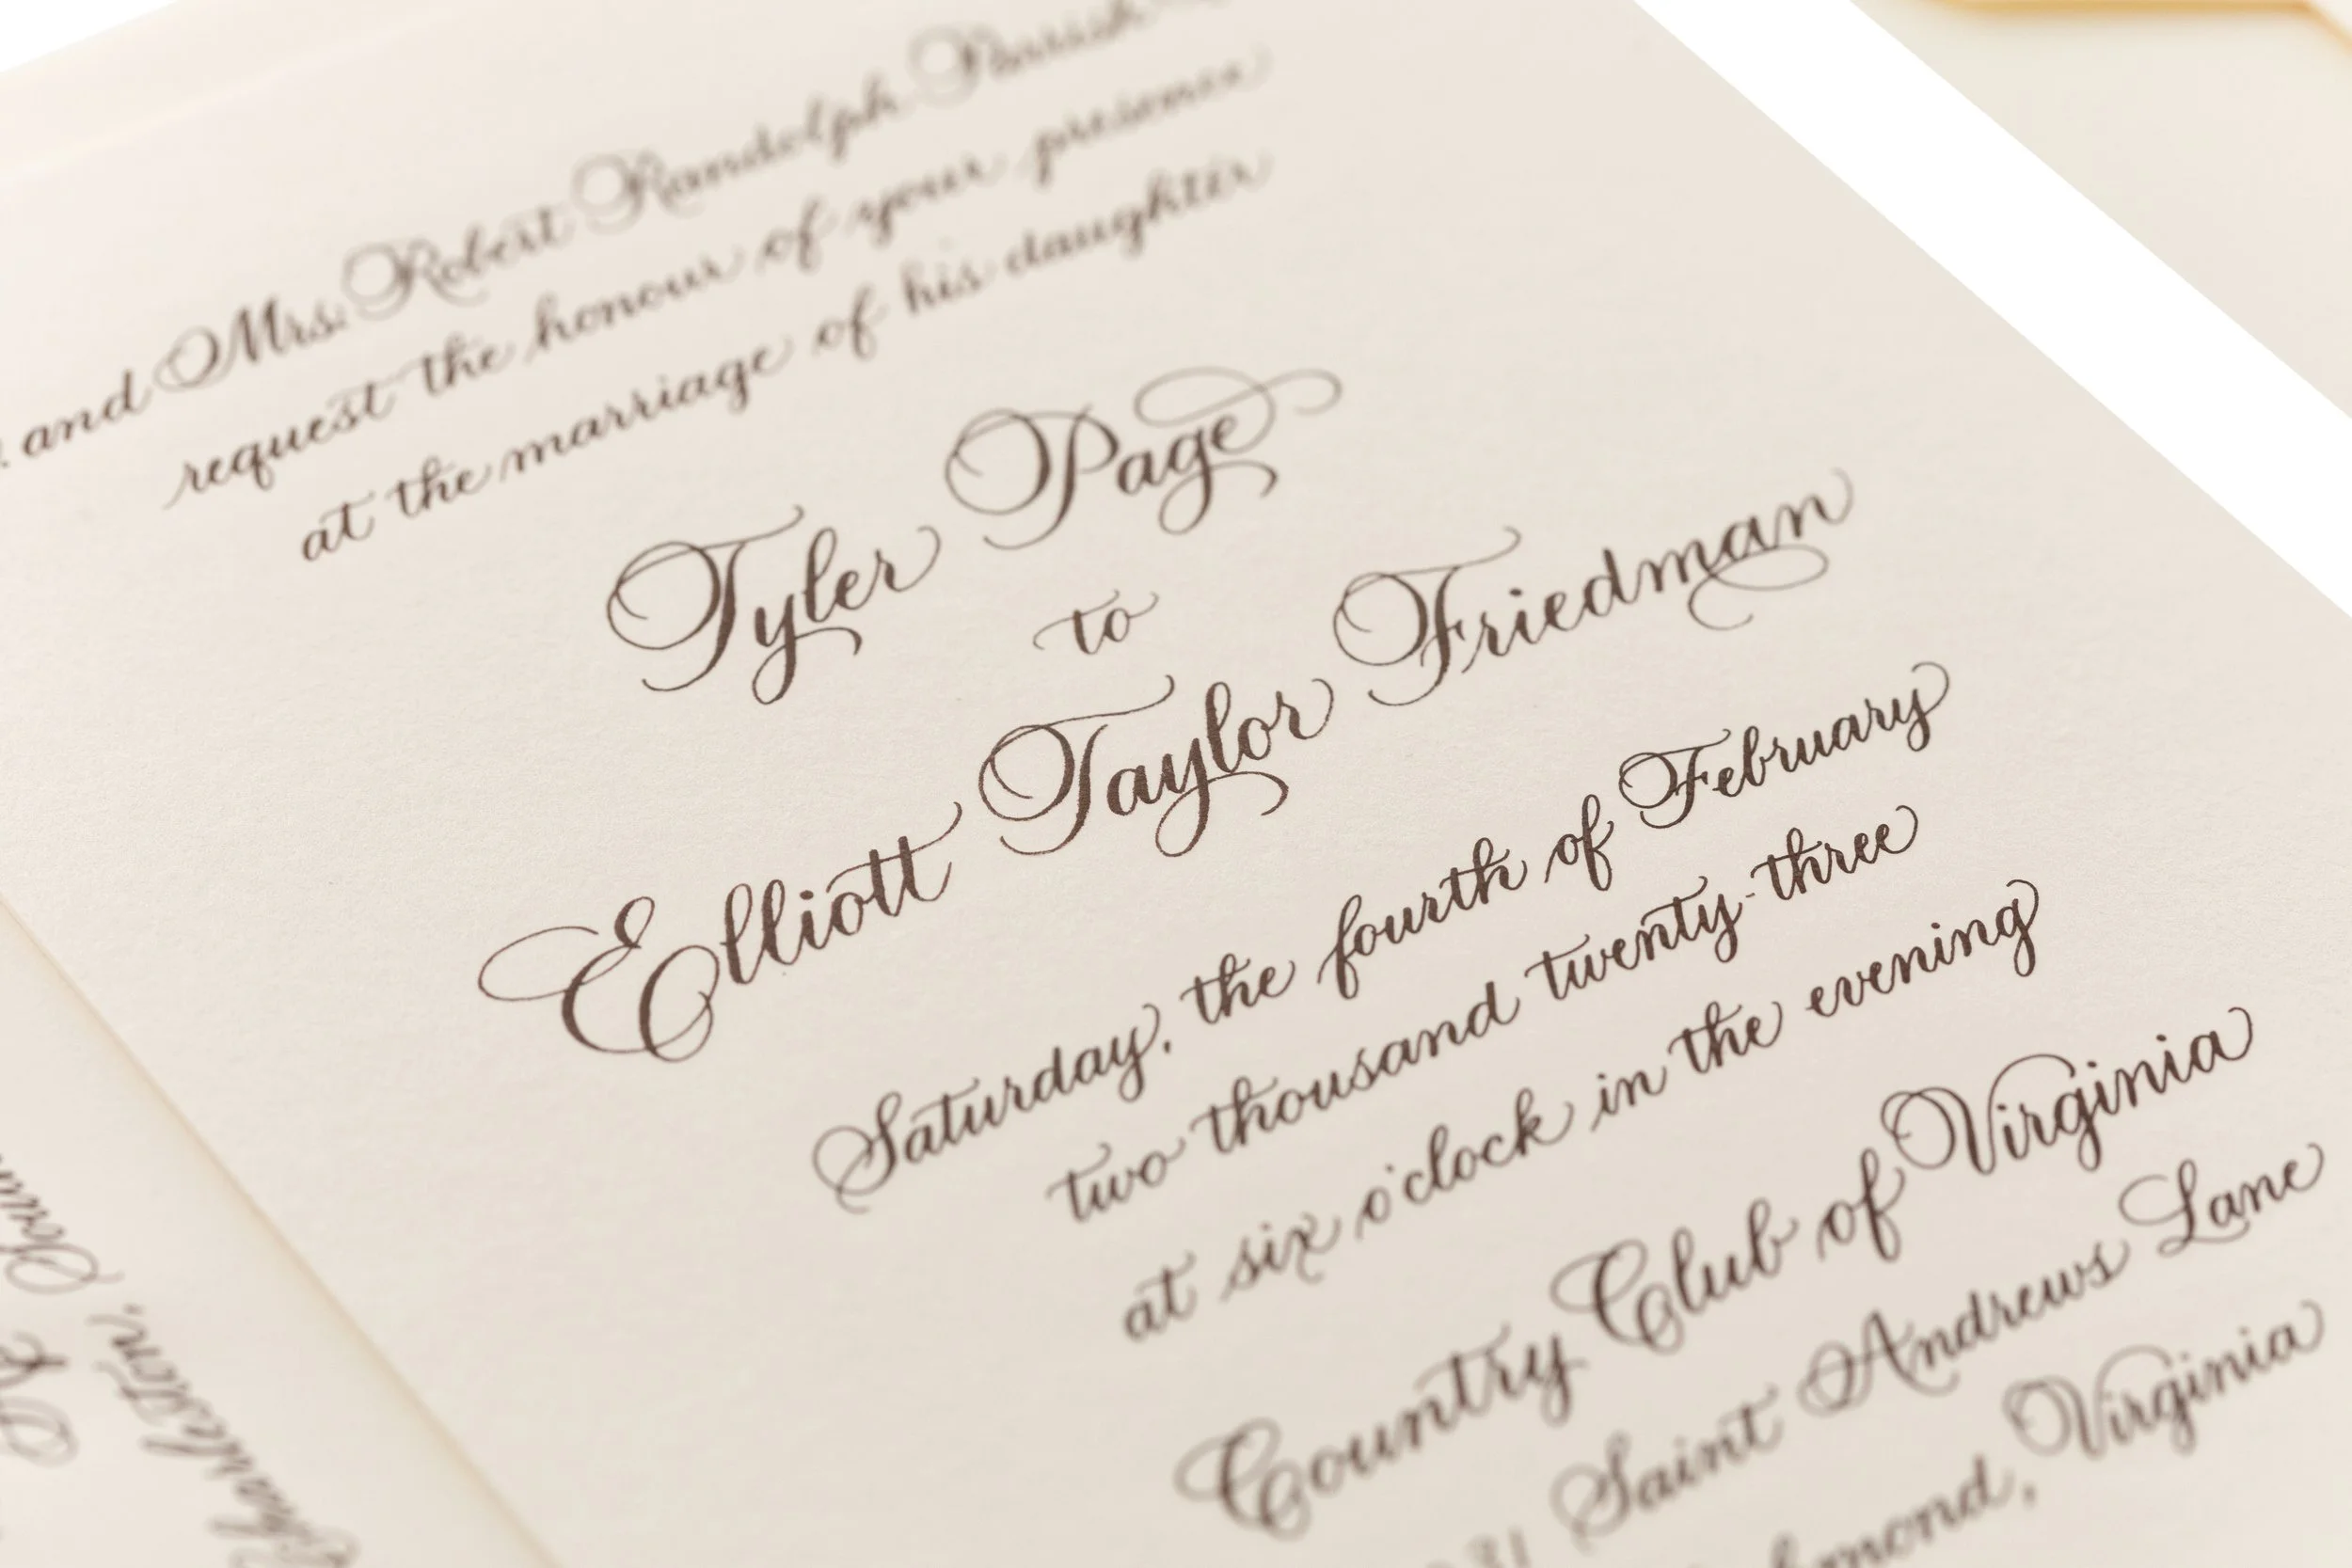 and Mrs. Robert Randolph Parrish
request the honour of your presence
at the marriage of his daughter
Tyler Page
to
Elliott Taylor Friedman
Saturday, the fourth of February
two thousand twenty-three
at six o'clock in the evening
Country Club of Virginia
31 Saint Andrews Lane
mond, Virginia
Charleston,